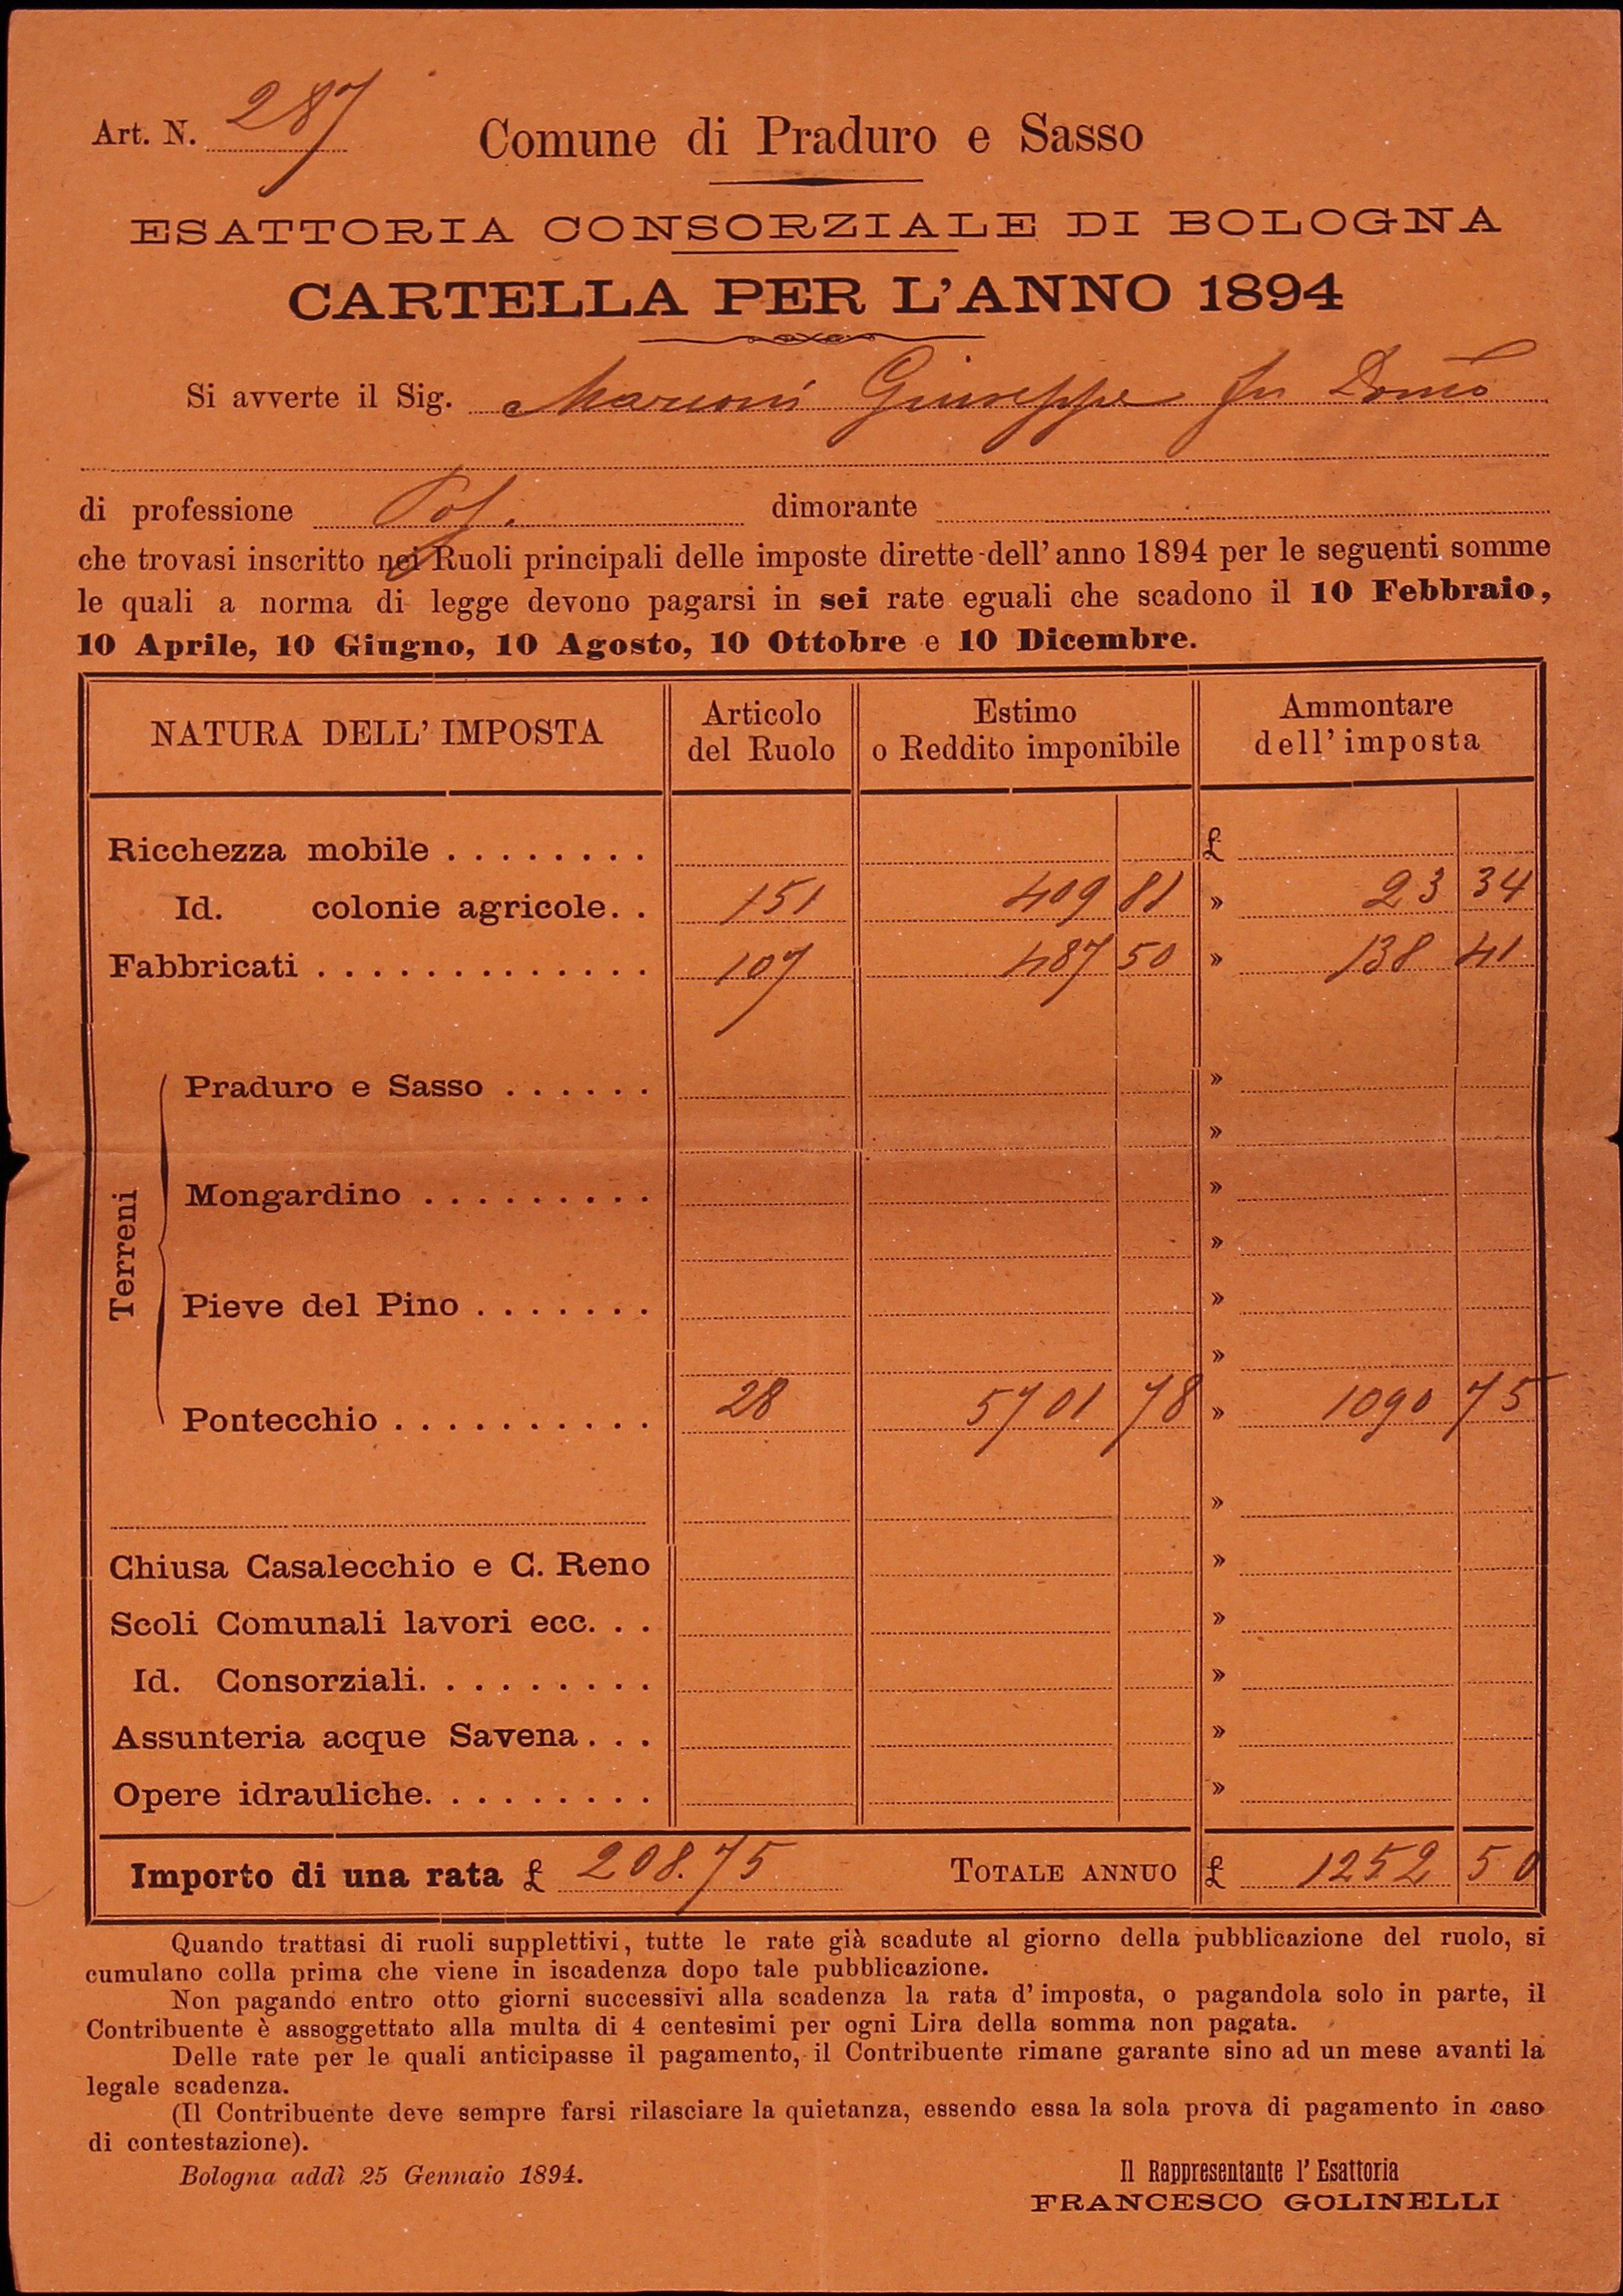 Art. N. 287
Comune di Praduro e Sasso
ESATTORIA CONSORZIALE DI BOLOGNA
CARTELLA PER L'ANNO 1894
Si avverte il Sig. Marconi Giuseppe fu Dom.co
di professione Pos. dimorante
che trovasi inscritto nei Ruoli principali delle imposte dirette dell'anno 1894 per le seguenti somme
le quali a norma di legge devono pagarsi in sei rate eguali che scadono il 10 Febbraio,
10 Aprile, 10 Giugno, 10 Agosto, 10 Ottobre e 10 Dicembre.
NATURA DELL'IMPOSTA Articolo del Ruolo Estimo o Reddito imponibile Ammontare dell'imposta
Ricchezza mobile . . . . . . . . £
Id. colonie agricole. . 151 409 81 » 23 34
Fabbricati . . . . . . . . . . . . . 107 487 50 » 138 41
Terreni
Praduro e Sasso . . . . . . »
»
Mongardino . . . . . . . . . »
»
Pieve del Pino . . . . . . . »
»
Pontecchio . . . . . . . . . . 28 5701 78 » 1090 75
»
Chiusa Casalecchio e C. Reno »
Scoli Comunali lavori ecc. . . »
Id. Consorziali. . . . . . . . . »
Assunteria acque Savena . . . »
Opere idrauliche. . . . . . . . . »
Importo di una rata £ 208.75 TOTALE ANNUO £ 1252 50
Quando trattasi di ruoli supplettivi, tutte le rate già scadute al giorno della pubblicazione del ruolo, si
cumulano colla prima che viene in iscadenza dopo tale pubblicazione.
Non pagando entro otto giorni successivi alla scadenza la rata d'imposta, o pagandola solo in parte, il
Contribuente è assoggettato alla multa di 4 centesimi per ogni Lira della somma non pagata.
Delle rate per le quali anticipasse il pagamento, il Contribuente rimane garante sino ad un mese avanti la
legale scadenza.
(Il Contribuente deve sempre farsi rilasciare la quietanza, essendo essa la sola prova di pagamento in caso
di contestazione).
Bologna addì 25 Gennaio 1894.
Il Rappresentante l'Esattoria
FRANCESCO GOLINELLI